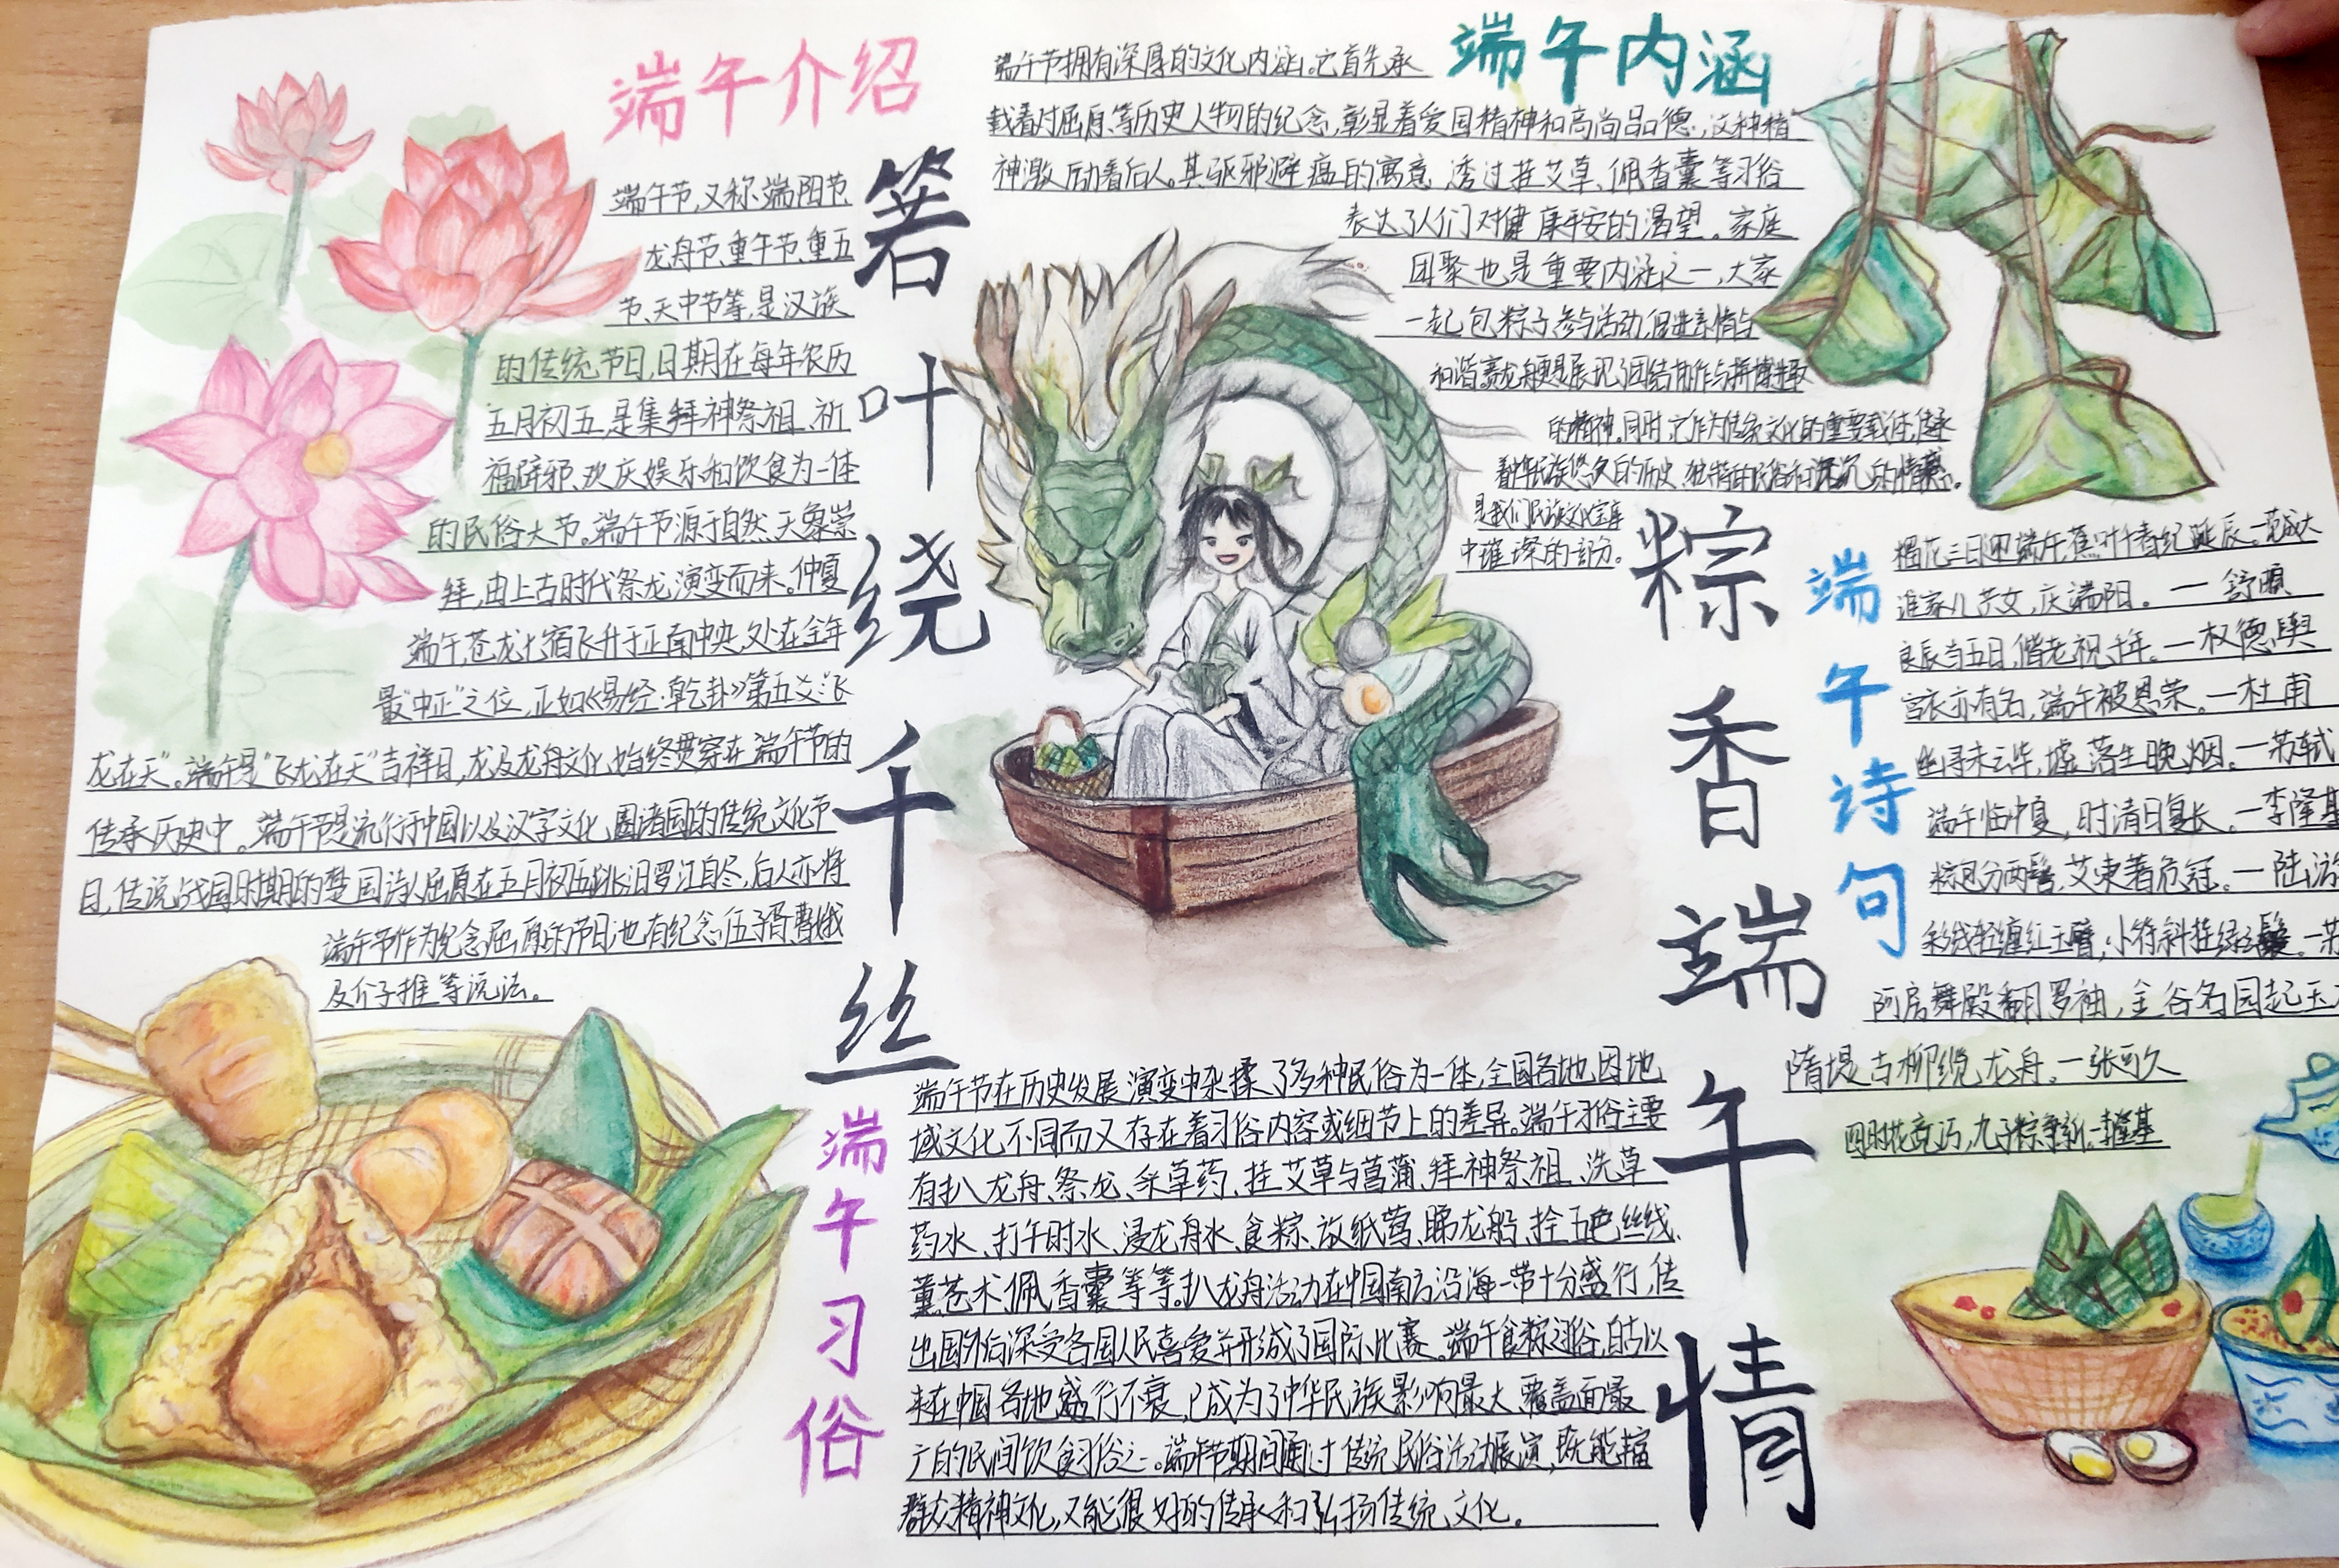 端午介绍
端午节,又称端阳节
龙舟节、重午节、重五
节、天中节等,是汉族
的传统节日,日期在每年农历
五月初五,是集拜神祭祖、祈
福辟邪、欢庆娱乐和饮食为一体
的民俗大节。端午节源于自然天象崇
拜,由上古时代祭龙演变而来。仲夏
端午,苍龙七宿飞升于正南中央,处在全年
最“中正”之位,正如《易经·乾卦》第五爻:“飞
龙在天”。端午是“飞龙在天”吉祥日,龙及龙舟文化始终贯穿在端午节的
传承历史中。端午节是流行于中国以及汉字文化圈诸国的传统文化节
日,传说战国时期的楚国诗人屈原在五月初五跳汨罗江自尽,后人亦将
端午节作为纪念屈原的节日;也有纪念伍子胥、曹娥
及介子推等说法。
箬叶绕千丝
端午内涵
端午节拥有深厚的文化内涵。它首先承
载着对屈原等历史人物的纪念,彰显着爱国精神和高尚品德,这种精
神激励着后人。其驱邪避瘟的寓意,透过挂艾草、佩香囊等习俗
表达了人们对健康平安的渴望。家庭
团聚也是重要内涵之一,大家
一起包粽子参与活动,促进亲情与
和谐赛龙舟更是展现了团结协作与拼搏
的精神,同时,它作为传统文化的重要载体,传承
着中华民族悠久的历史、独特的民俗和深沉的情感。
是我们民族文化宝库
中璀璨的部分。
粽香端午情
端午诗句
榴花三日迎端午,蕉叶千春纪诞辰。
谁家儿共女,庆端阳。一舒頔
良辰当五日,偕老祝千年。一权德舆
宫衣亦有名,端午被恩荣。一杜甫
幽寻未云毕,墟落生晚烟。一苏轼
端午临中夏,时清日复长。一李隆基
粽包分两髻,艾束著危冠。一陆游
彩线轻缠红玉臂,小符斜挂绿云鬟。一苏
阿房舞殿翻罗袖,金谷名园起玉
隋堤古柳缆龙舟。一张可久
四时花竞巧,九子粽争新。李隆基
端午习俗
端午节在历史发展演变中杂揉了多种民俗为一体,全国各地因地
域文化不同而又存在着习俗内容或细节上的差异。端午习俗主要
有扒龙舟、祭龙、采草药、挂艾草与菖蒲、拜神祭祖、洗草
药水、打午时水、浸龙舟水、食粽、放纸鸢、睇龙船、拴五色丝线、
薰苍术、佩香囊等等。扒龙舟活动在中国南方沿海一带十分盛行,传
出国外后深受各国人民喜爱并形成了国际比赛。端午食粽之习俗,自古以
来在中国各地盛行不衰,已成为了中华民族影响最大、覆盖面最
广的民间饮食习俗之一。端午节期间通过传统民俗活动展演,既能丰富
群众精神文化,又能很好的传承和弘扬传统文化。